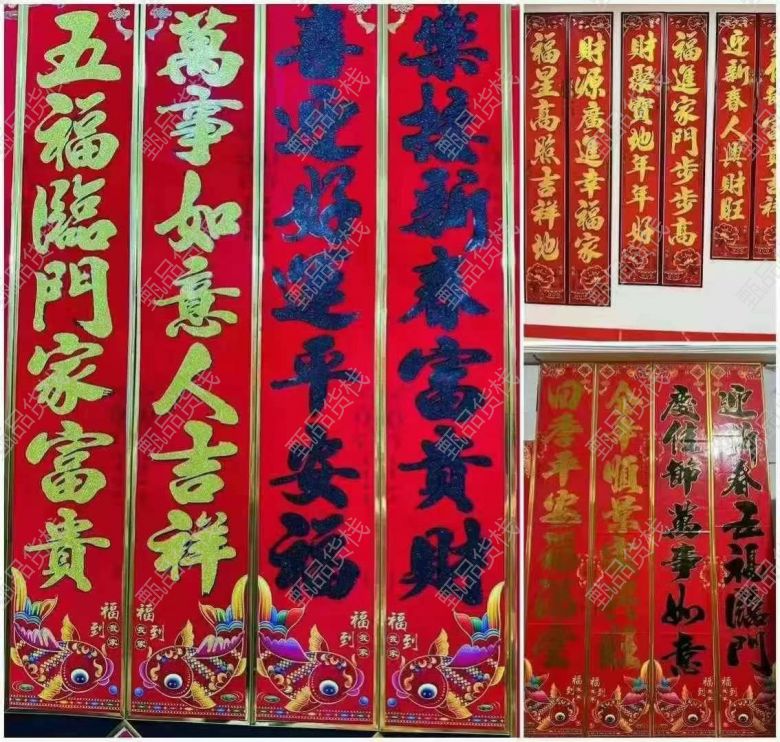 樂接新春富貴財
喜迎好運平安福
萬事如意人吉祥
五福臨門家富貴
福到我家
福到我家
福到我家
迎新春人興財旺
福進家門步步高
財聚寶地年年好
財源廣進幸福家
福星高照吉祥地
迎新春五福臨門
慶佳節萬事如意
旺
四季平安福滿堂
福到
福到
甄品货栈